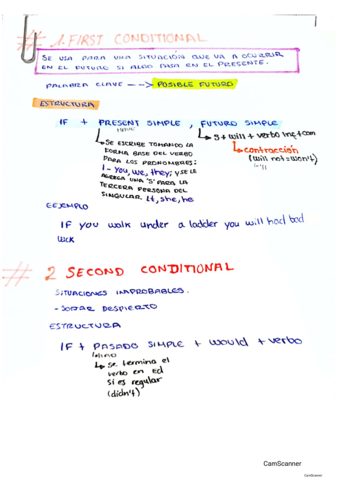 # 1. FIRST CONDITIONAL
SE USA PARA UNA SITUACIÓN QUE VA A OCURRIR
EN EL FUTURO SI ALGO PASA EN EL PRESENTE.
PALABRA CLAVE --> POSIBLE FUTURO
ESTRUCTURA
IF + PRESENT SIMPLE , FUTURO SIMPLE
S + will + verbo
SE ESCRIBE TOMANDO LA
FORMA BASE DEL VERBO
PARA LOS PRONOMBRES:
I - YOU, WE, THEY; Y SE LE
AGREGA UNA 'S' PARA LA
TERCERA PERSONA DEL
SINGULAR. It, SHE, HE
contracción
(will not = won't)
'll
EJEMPLO
IF YOU WALK UNDER A LADDER YOU WILL HAD BAD
LUCK
# 2 SECOND CONDITIONAL
SITUACIONES IMPROBABLES.
- SOÑAR DESPIERTO
ESTRUCTURA
IF + PASADO SIMPLE + would + verbo
Se termina el
verbo en ed
si es regular
(didn't)
CamScanner
CamScanner